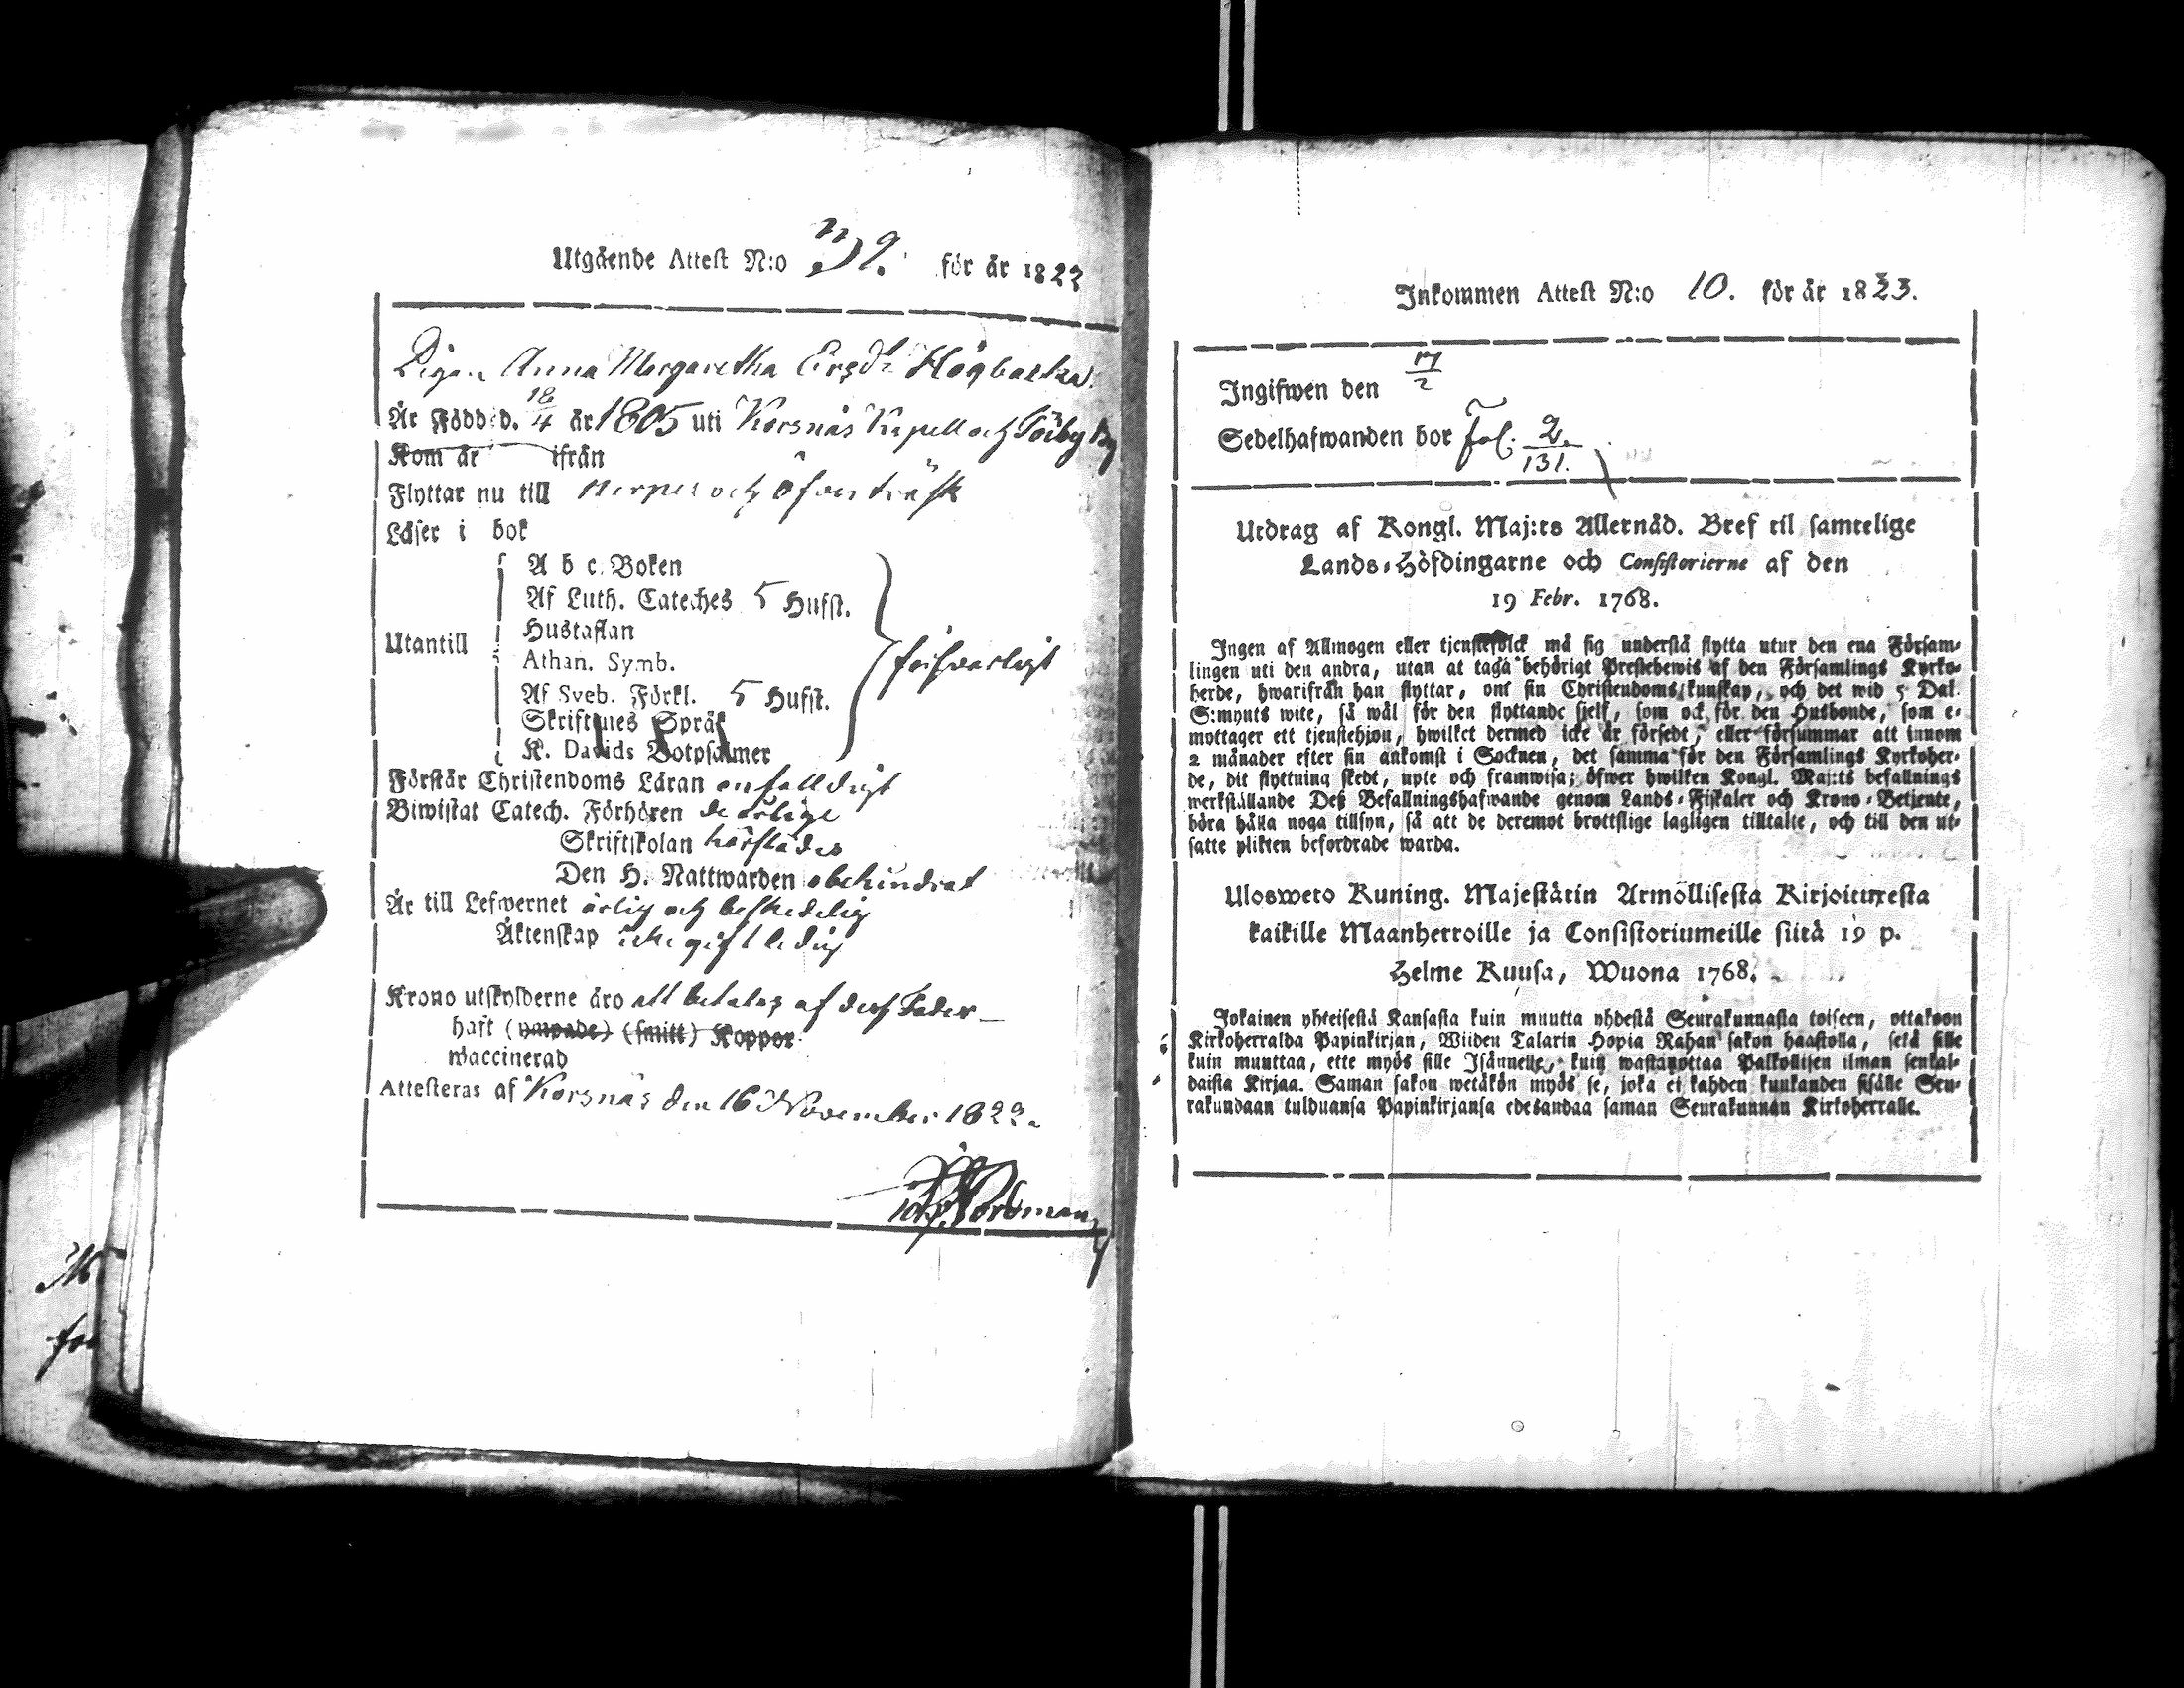 Utgående Attest N:o 39. för år 1822
Pigan Anna Margaretha Ersdr Högbacka.
Är Född d. 18/4 år 1805 uti Korsnäs Kapell och Töiby by
Kom år ifrån
Flyttar nu till Nerpes och Öfverträsk
Läser i bok
A b c Boken
Af Luth. Cateches 5 Hufst.
Hustaflan
Utantill
Athan. Symb.
försvarligt
Af Sveb. Förkl. 5 Hufst.
Skriftenes Språk
K. Davids Botpsalmer
Förstår Christendoms Läran enfalldigt
Biwistat Catech. Förhören de årlige
Skriftskolan härstädes
Den H. Nattwarden obehindrat
Är till Lefwernet ärlig och beskedelig
Äktenskap icke gift ledig
Krono utskylderne äro att betalas af dess Fader
haft (ympade) (smitt) Koppor
waccinerad
Attesteras af Korsnäs den 16 November 1822.
Nordman
Inkommen Attest N:o 10. för år 1823.
Ingifwen den 17/2
Sedelhafwanden bor Fol. 2. / 131.
Utdrag af Kongl. Maj:ts Allernåd. Bref til samtelige
Lands-Höfdingarne och Consistorierne af den
19 Febr. 1768.
Ingen af Allmogen eller tjenstefolck må sig understå flytta utur den ena Försam-
lingen uti den andra, utan at taga behörigt Prestebewis af den Församlings Kyrko-
herde, hwarifrån han flyttar, om sin Christendoms kunskap, och det wid 5 Dal.
S:mynts wite, så wäl för den flyttande sjelf, som ock för den Husbonde, som e-
mottager ett tjenstehjon, hwilket dermed icke är försedt, eller försummar att innom
2 månader efter sin ankomst i Socknen, det samma för den Församlings Kyrkoher-
de, dit flyttning skedt, upte och framwisa; öfwer hwilken Kongl. Maj:ts befallnings
werkställande Deß Befallningshafwande genom Lands-Fiskaler och Krono-Betjente,
böra hålla noga tillsyn, så att de deremot brottslige lagligen tilltalte, och till den ut-
satte plikten befordrade warda.
Ulosweto Kuning. Majestätin Armollisesta Kirjoituxesta
kaikille Maanherroille ja Consistoriumeille siitä 19 p.
Helme Kuusa, Wuona 1768.
Jokainen yhteisestä Kansasta kuin muutta yhdestä Seurakunnasta toiseen, ottakoon
Kirkoherralda Papinkirjan, Wiiden Talarin Hopia Rahan sakon haastolla, sekä sille
kuin muuttaa, ette myös sille Isännelle, kuin wastanottaa Palkollisen ilman senkal-
daista Kirjaa. Saman sakon wetäkön myös se, joka ei kahden kuukauden sisälle Seu-
rakundaan tulduansa Papinkirjansa edesandaa saman Seurakunnan Kirkoherralle.